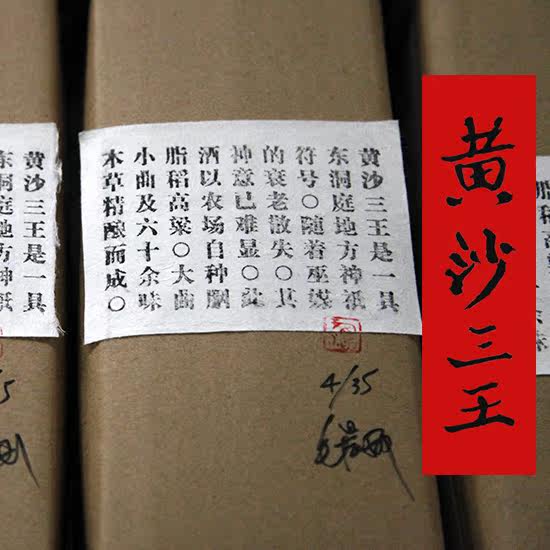 黄沙三王
黄沙三王是一具
东洞庭地方神祇
符号○随着巫媒
的衰老散失○其
神意已难显○此
酒以农场自种胭
脂稻高粱○大曲
小曲及六十余味
本草精酿而成○
4/35
黄沙三王是一具
东洞庭地方神祇
5